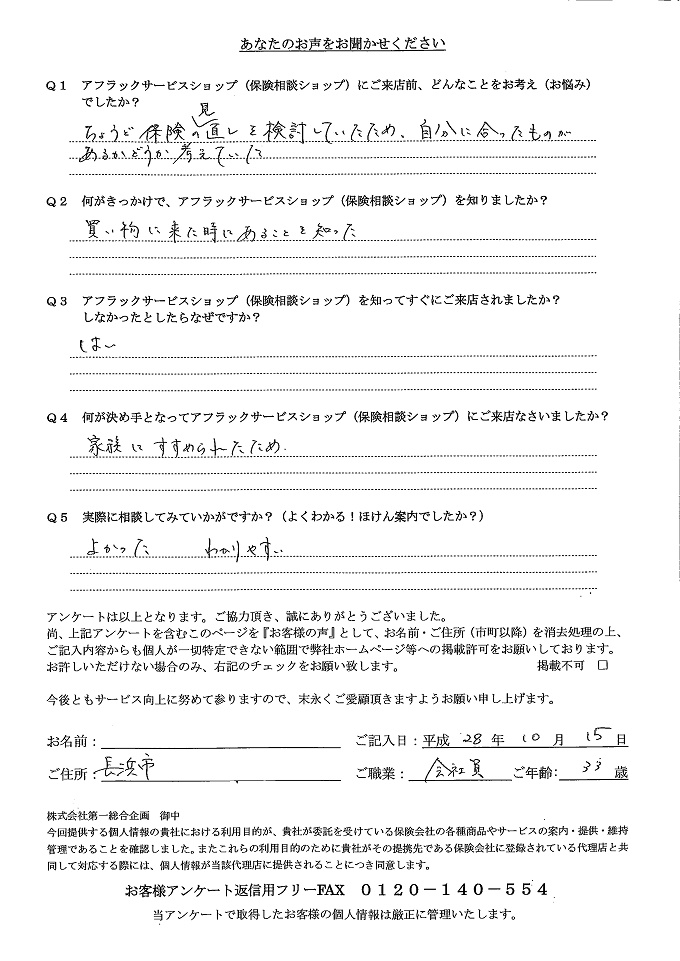 あなたのお声をお聞かせください
Q1 アフラックサービスショップ（保険相談ショップ）にご来店前、どんなことをお考え（お悩み）
でしたか？
見
ちょうど保険の直しを検討していたため、自分に合ったものが
あるかどうか考えていた
Q2 何がきっかけで、アフラックサービスショップ（保険相談ショップ）を知りましたか？
買い物に来た時にあることを知った
Q3 アフラックサービスショップ（保険相談ショップ）を知ってすぐにご来店されましたか？
しなかったとしたらなぜですか？
はい
Q4 何が決め手となってアフラックサービスショップ（保険相談ショップ）にご来店なさいましたか？
家族にすすめられたため.
Q5 実際に相談してみていかがですか？（よくわかる！ほけん案内でしたか？）
よかった わかりやすい
アンケートは以上となります。ご協力頂き、誠にありがとうございました。
尚、上記アンケートを含むこのページを『お客様の声』として、お名前・ご住所（市町以降）を消去処理の上、
ご記入内容からも個人が一切特定できない範囲で弊社ホームページ等への掲載許可をお願いしております。
お許しいただけない場合のみ、右記のチェックをお願い致します。 掲載不可 □
今後ともサービス向上に努めて参りますので、末永くご愛顧頂きますようお願い申し上げます。
お名前： ご記入日：平成 28 年 10 月 15 日
ご住所：長浜市 ご職業： 会社員 ご年齢： 33 歳
株式会社第一総合企画 御中
今回提供する個人情報の貴社における利用目的が、貴社が委託を受けている保険会社の各種商品やサービスの案内・提供・維持
管理であることを確認しました。またこれらの利用目的のために貴社がその提携先である保険会社に登録されている代理店と共
同して対応する際には、個人情報が当該代理店に提供されることにつき同意します。
お客様アンケート返信用フリーFAX 0120－140－554
当アンケートで取得したお客様の個人情報は厳正に管理いたします。